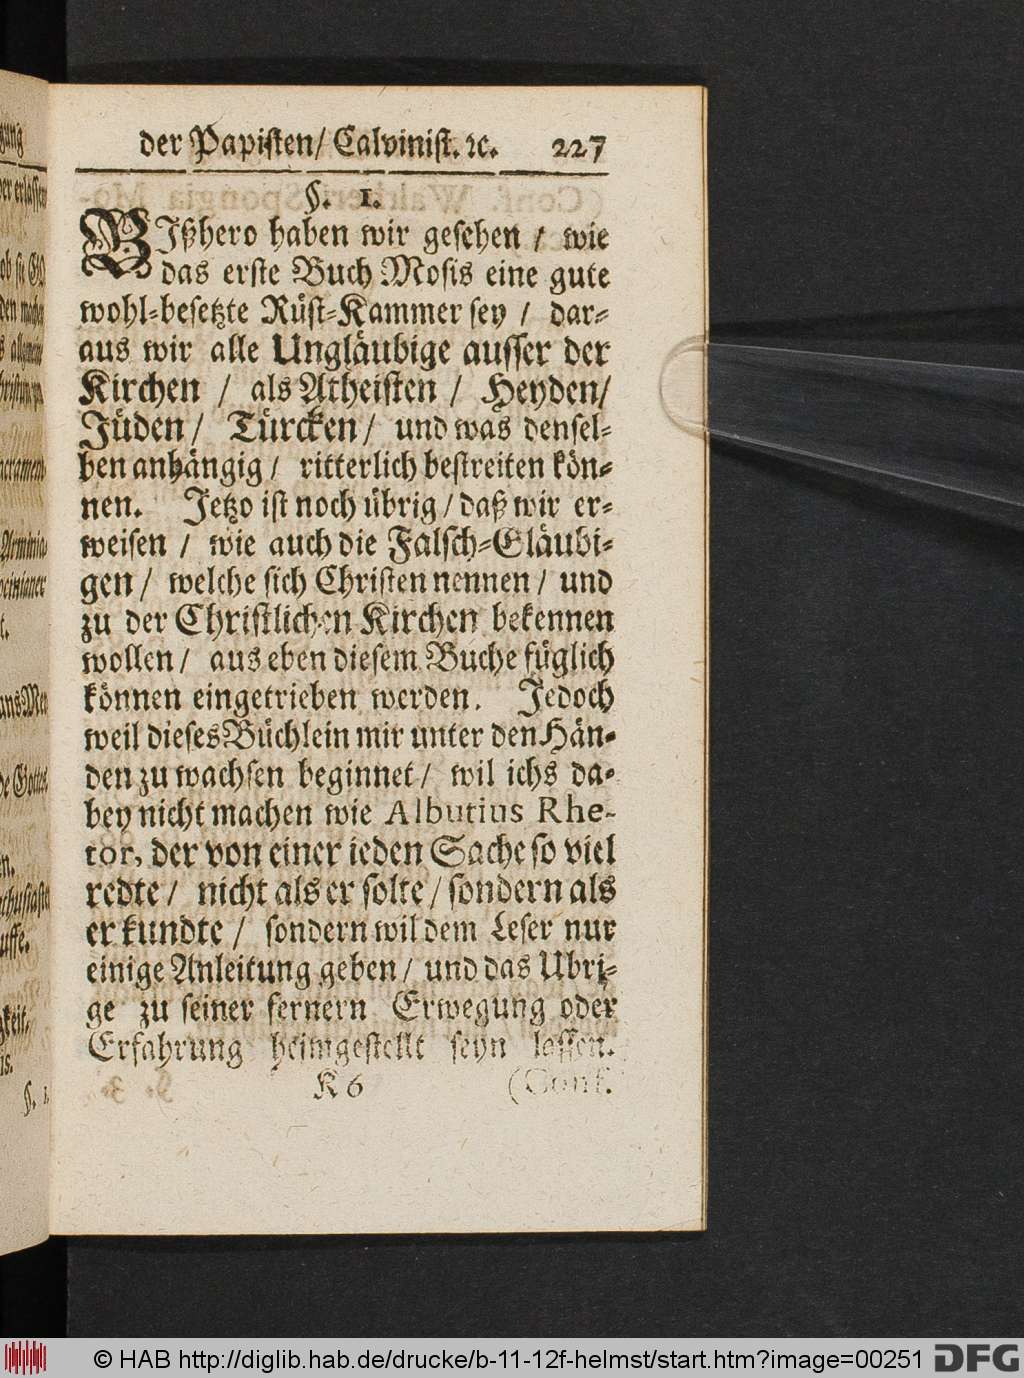 der Papisten/ Calvinist. ꝛc. 227
§. 1.
BIßhero haben wir gesehen / wie
das erste Buch Mosis eine gute
wohl-besetzte Rüst-Kammer sey / dar-
aus wir alle Ungläubige ausser der
Kirchen / als Atheisten / Heyden/
Jüden/ Türcken/ und was densel-
ben anhängig/ ritterlich bestreiten kön-
nen. Jetzo ist noch übrig/ daß wir er-
weisen / wie auch die Falsch-Gläubi-
gen/ welche sich Christen nennen/ und
zu der Christlichen Kirchen bekennen
wollen/ aus eben diesem Buche füglich
können eingetrieben werden. Jedoch
weil dieses Büchlein mir unter den Hän-
den zu wachsen beginnet/ wil ichs da-
bey nicht machen wie Albutius Rhe-
tor, der von einer ieden Sache so viel
redte/ nicht als er solte/ sondern als
er kundte/ sondern wil dem Leser nur
einige Anleitung geben/ und das Ubri-
ge zu seiner fernern Erwegung oder
Erfahrung heimgestellt seyn lassen.
K 6 (Conf.
© HAB http://diglib.hab.de/drucke/b-11-12f-helmst/start.htm?image=00251 DFG